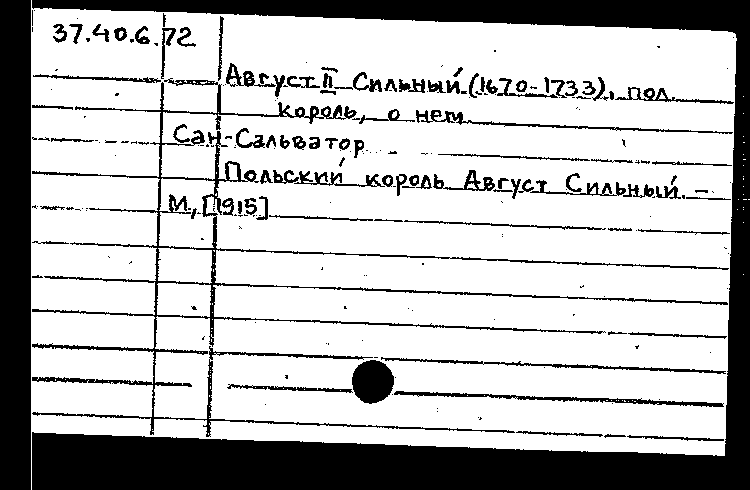 37.40.6.72
Август II Сильный (1670-1733), пол.
король, о нем.
Сан-Сальватор
Польский король Август Сильный. –
М., [1915]